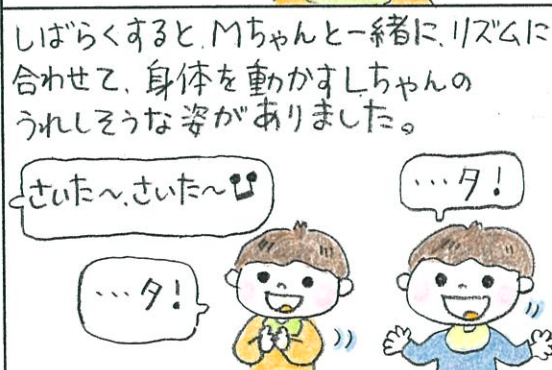 しばらくすると、Mちゃんと一緒に、リズムに
合わせて、身体を動かすLちゃんの
うれしそうな姿がありました。
さいた〜、さいた〜
…タ!
…タ!